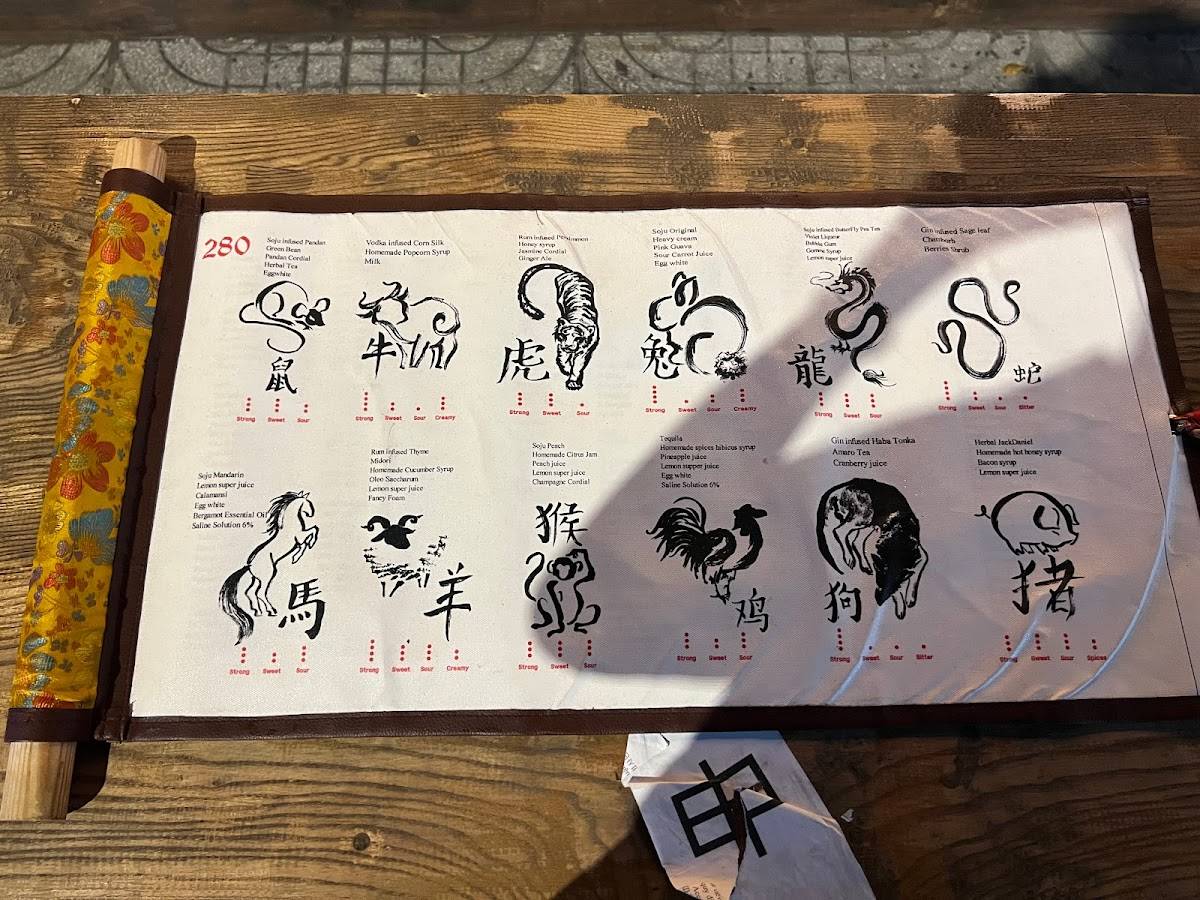 280
Soju infused Pandan
Green Bean
Pandan Cordial
Herbal Tea
Eggwhite
鼠
Strong Sweet Sour
Vodka infused Corn Silk
Homemade Popcorn Syrup
Milk
牛
Strong Sweet Sour Creamy
Rum infused Persimmon
Honey syrup
Jasmine Cordial
Ginger Ale
虎
Strong Sweet Sour
Soju Original
Heavy cream
Pink Guava
Sour Carrot Juice
Egg white
兔
Strong Sweet Sour Creamy
Soju infused Butterfly Pea Tea
Violet Liqueur
Bubble Gum
Gomme Syrup
Lemon super juice
龍
Strong Sweet Sour
Gin infused Sage leaf
Chambord
Berries Shrub
蛇
Strong Sweet Sour Bitter
Soju Mandarin
Lemon super juice
Calamansi
Egg white
Bergamot Essential Oil
Saline Solution 6%
馬
Strong Sweet Sour
Rum infused Thyme
Midori
Homemade Cucumber Syrup
Oleo Saccharum
Lemon super juice
Fancy Foam
羊
Strong Sweet Sour Creamy
Soju Peach
Homemade Citrus Jam
Peach juice
Lemon super juice
Champagne Cordial
猴
Strong Sweet Sour
Tequila
Homemade spices hibicus syrup
Pineapple juice
Lemon supper juice
Egg white
Saline Solution 6%
鸡
Strong Sweet Sour
Gin infused Haba Tonka
Amaro Tea
Cranberry juice
狗
Strong Sweet Sour Bitter
Herbal JackDaniel
Homemade hot honey syrup
Bacon syrup
Lemon super juice
猪
Strong Sweet Sour Spices